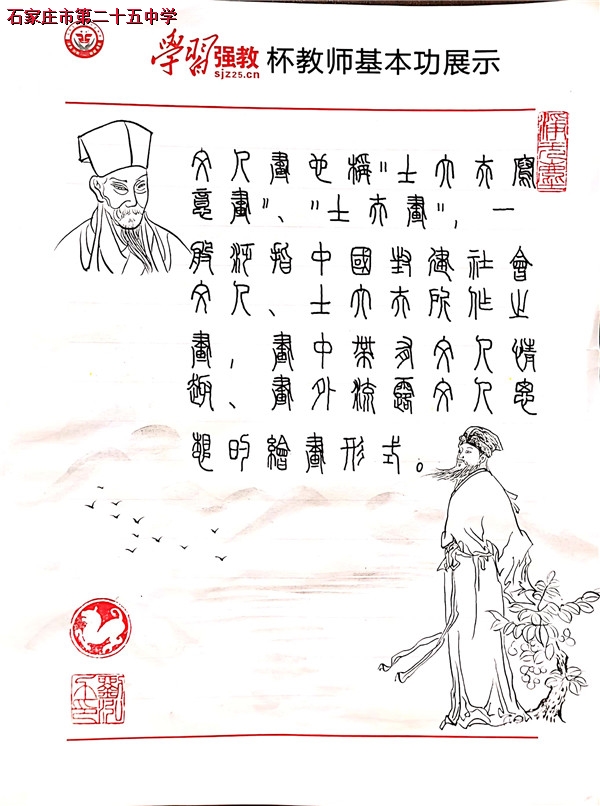 石家庄市第二十五中学
學習强教 杯教师基本功展示
sjz25.cn
文人畫也稱"士大夫寫
意畫"、"士夫畫"，一
般泛指中國封建社會
文人、士大夫所作之
畫，畫中帶有文人情
趣、畫外流露文人思
想的繪畫形式。